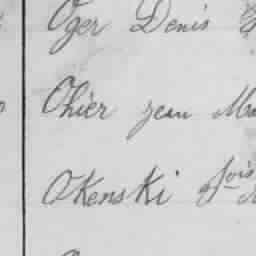 Oger Denis
Ohier jean
OKenski fois